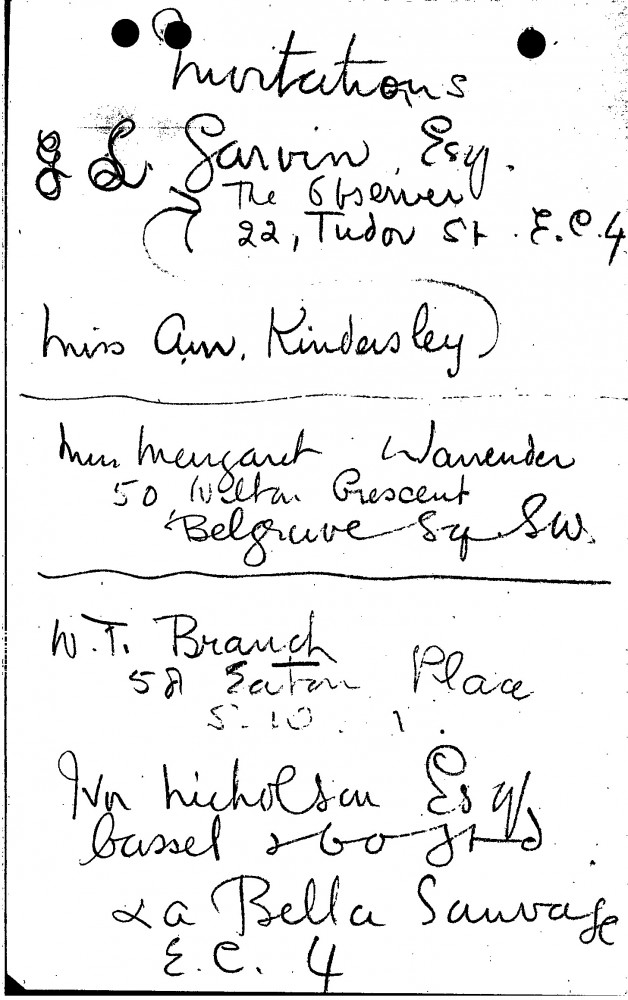 Invitations
J L. Garvin, Esq.
The Observer
22, Tudor St. E.C.4
Miss Ann. Kindersley
Miss Margaret Warrender
50 Wilton Crescent
Belgrave Sq SW.
W.T. Branch
58 Eaton Place
S. W. 1.
Ivor Nicholson Esq
Cassel & Co Ltd
La Bella Sauvage
E.C. 4